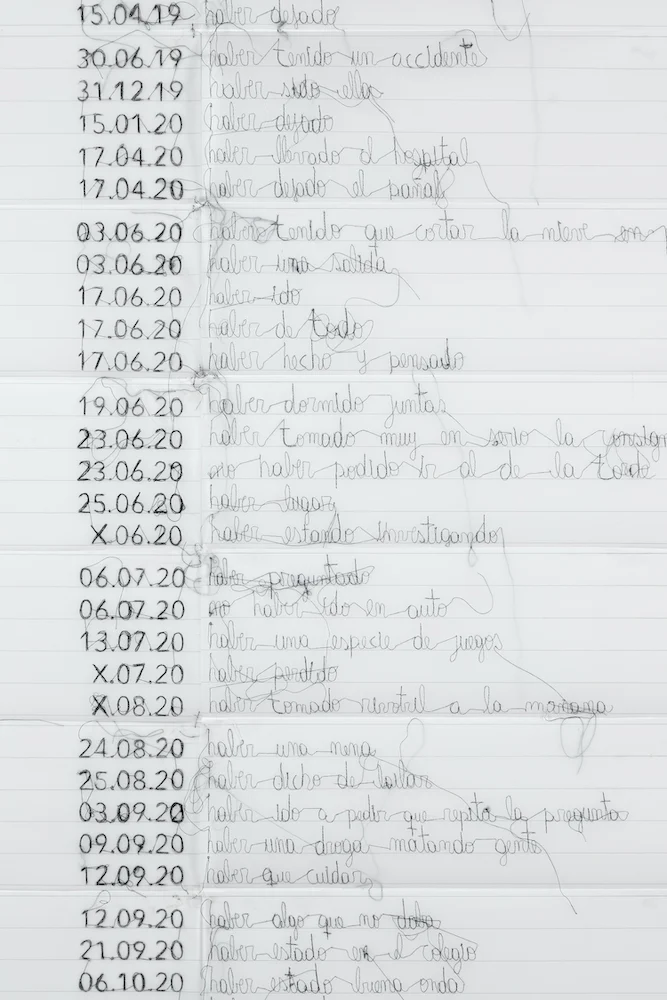 15.04.19 haber dejado
30.06.19 haber tenido un accidente
31.12.19 haber sido ella
15.01.20 haber dejado
17.04.20 haber llevado al hospital
17.04.20 haber dejado el pañal
03.06.20 haber tenido que cortar la nieve en
03.06.20 haber una salida
17.06.20 haber ido
17.06.20 haber de todo
17.06.20 haber hecho y pensado
19.06.20 haber dormido juntas
23.06.20 haber tomado muy en serio la consign
23.06.20 no haber podido ir al de la tarde
25.06.20 haber lugar
X.06.20 haber estando investigando
06.07.20 haber preguntado
06.07.20 no haber ido en auto
13.07.20 haber una especie de juegos
X.07.20 haber perdido
X.08.20 haber tomado rivotril a la mañana
24.08.20 haber una nena
25.08.20 haber dicho de bailar
03.09.20 haber ido a pedir que repita la pregunta
09.09.20 haber una droga matando gente
12.09.20 haber que cuidar
12.09.20 haber algo que no daba
21.09.20 haber estado en el colegio
06.10.20 haber estado buena onda